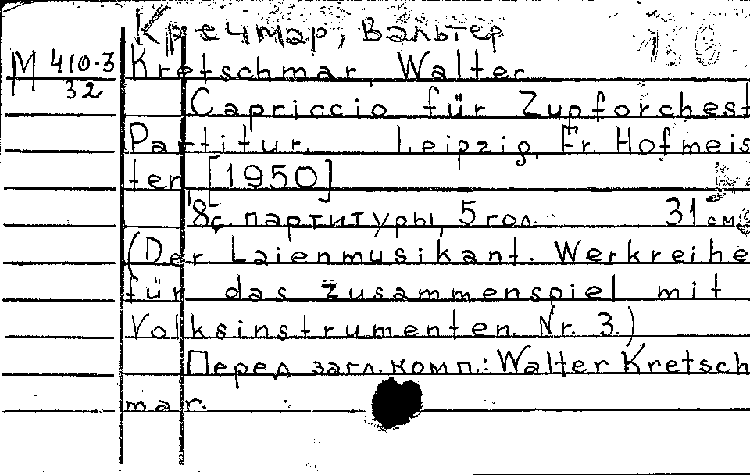 Кречмар, Вальтер
М 410-3
32
Kretschmar, Walter
Capriccio für Zupforchest
Partitur. Leipzig, Fr. Hofmeis
ter [1950]
8с. партитуры, 5 гол. 31 см.
(Der Laienmusikant. Werkreihe
für das zusammenspiel mit
Volksinstrumenten. Nr. 3.)
Перед загл. комп.: Walter Kretsch
mar.